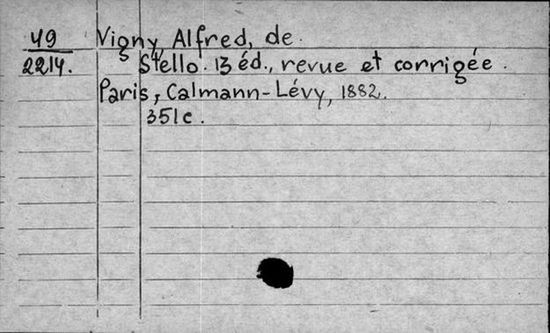 49 Vigny, Alfred, de.
2214. Stello. 13 éd., revue et corrigée.
Paris, Calmann-Lévy, 1882.
351c.